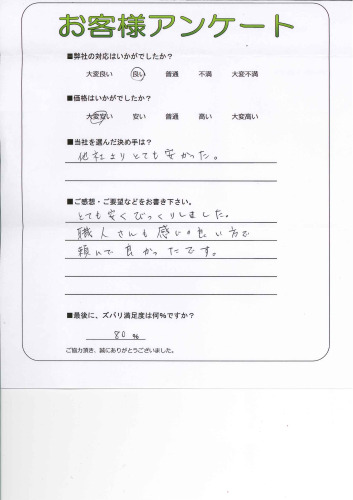 お客様アンケート
■弊社の対応はいかがでしたか？
大変良い 良い 普通 不満 大変不満
■価格はいかがでしたか？
大変安い 安い 普通 高い 大変高い
■当社を選んだ決め手は？
他社よりとても安かった。
■ご感想・ご要望などをお書き下さい。
とても安くびっくりしました。
職人さんも感じの良い方で
頼んで良かったです。
■最後に、ズバリ満足度は何%ですか？
80 %
ご協力頂き、誠にありがとうございました。